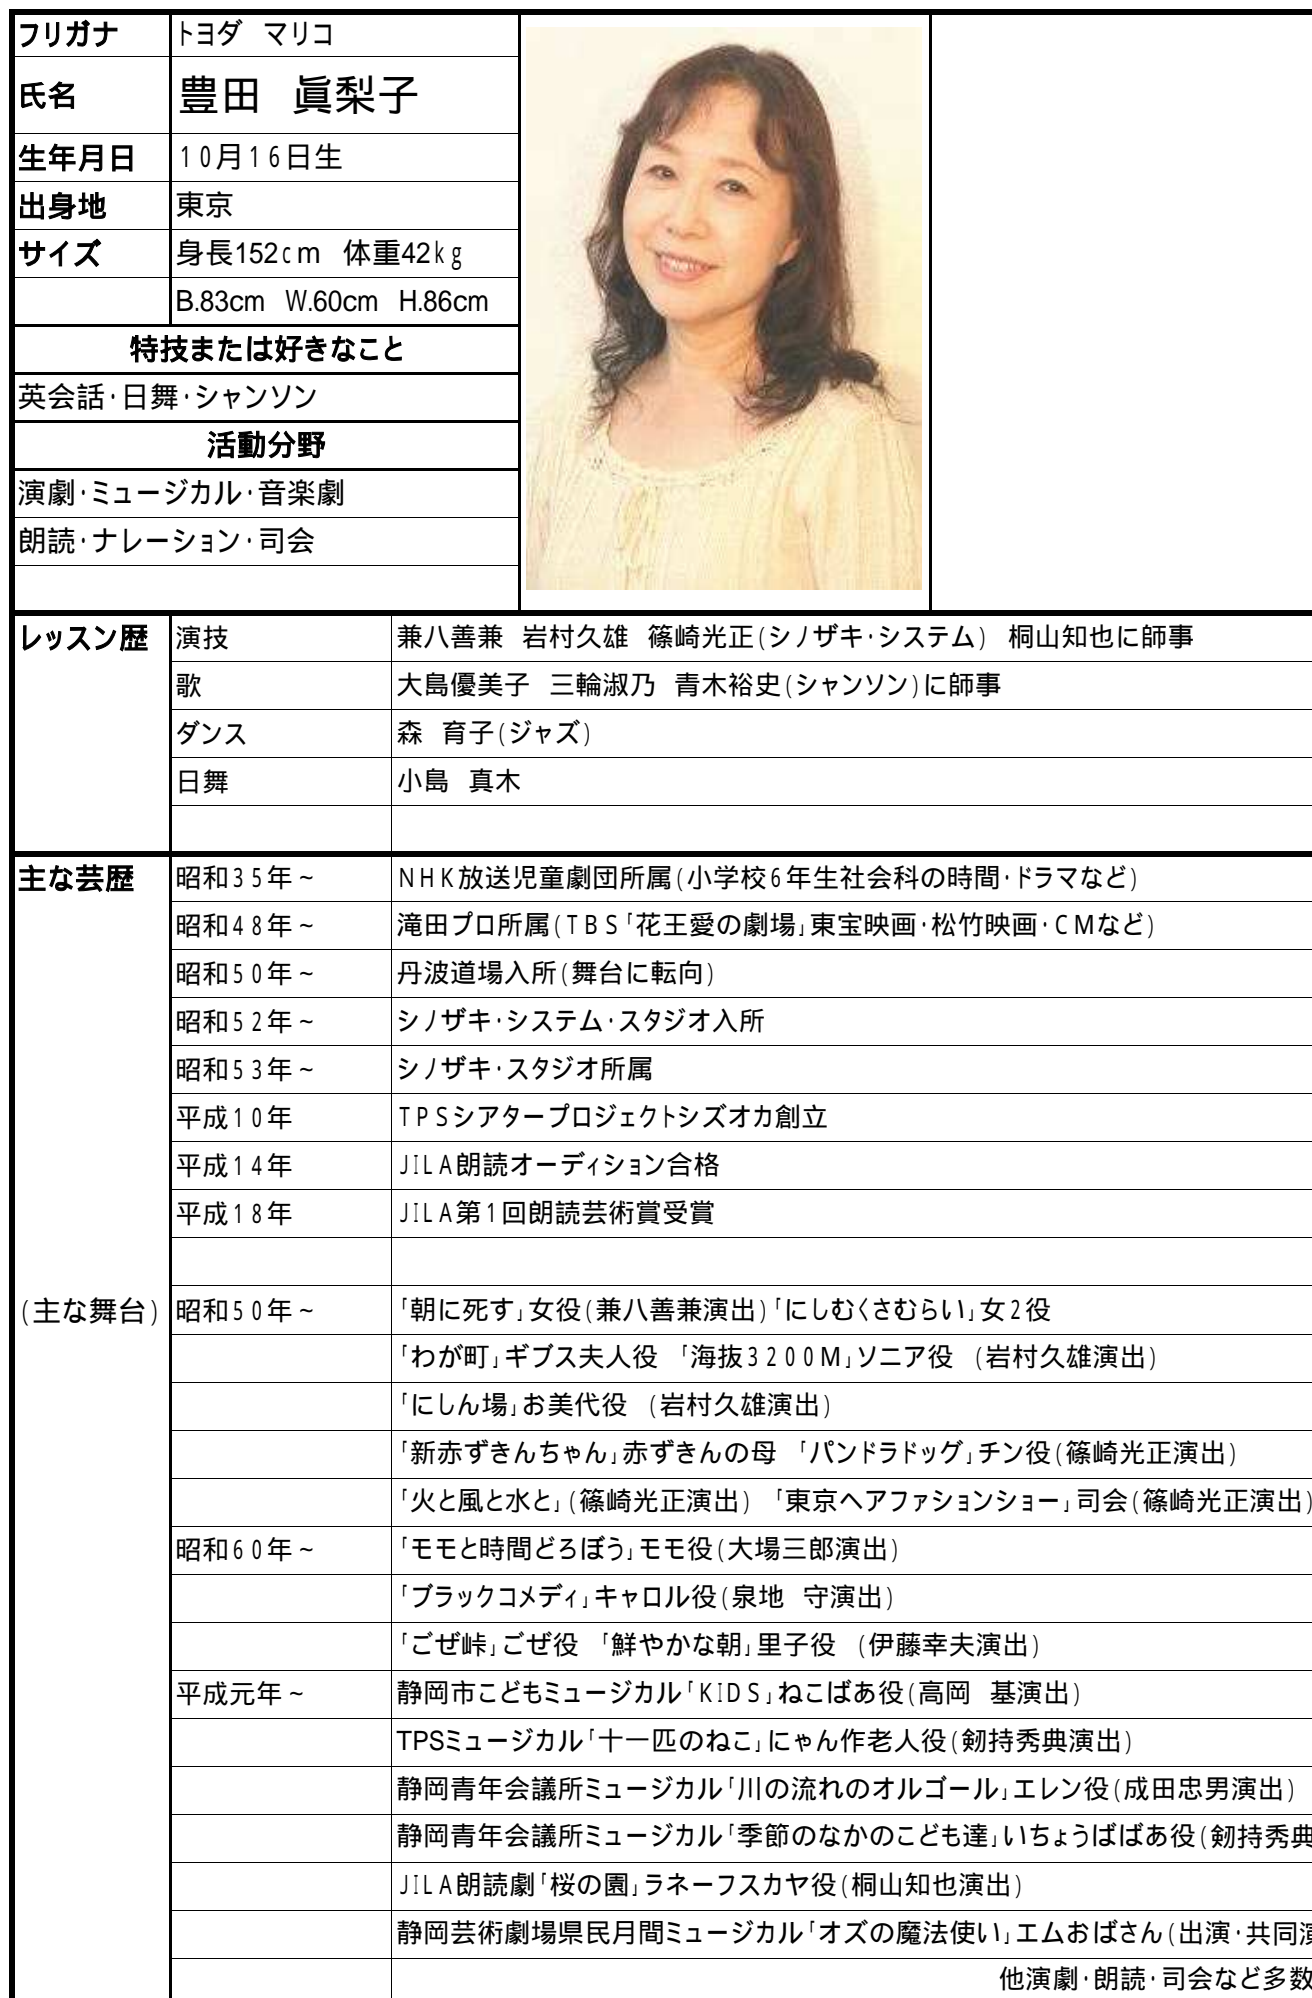 フリガナ トヨダ マリコ
氏名 豊田 眞梨子
生年月日 10月16日生
出身地 東京
サイズ 身長152cm 体重42kg
B.83cm W.60cm H.86cm
特技または好きなこと
英会話・日舞・シャンソン
活動分野
演劇・ミュージカル・音楽劇
朗読・ナレーション・司会
レッスン歴 演技 兼八善兼 岩村久雄 篠崎光正(シノザキ・システム) 桐山知也に師事
歌 大島優美子 三輪淑乃 青木裕史(シャンソン)に師事
ダンス 森 育子(ジャズ)
日舞 小島 真木
主な芸歴 昭和35年~ NHK放送児童劇団所属(小学校6年生社会科の時間・ドラマなど)
昭和48年~ 滝田プロ所属(TBS「花王愛の劇場」東宝映画・松竹映画・CMなど)
昭和50年~ 丹波道場入所(舞台に転向)
昭和52年~ シノザキ・システム・スタジオ入所
昭和53年~ シノザキ・スタジオ所属
平成10年 TPSシアタープロジェクトシズオカ創立
平成14年 JILA朗読オーディション合格
平成18年 JILA第1回朗読芸術賞受賞
(主な舞台) 昭和50年~ 「朝に死す」女役(兼八善兼演出)「にしむくさむらい」女2役
「わが町」ギブス夫人役 「海抜3200M」ソニア役 (岩村久雄演出)
「にしん場」お美代役 (岩村久雄演出)
「新赤ずきんちゃん」赤ずきんの母 「パンドラドッグ」チン役(篠崎光正演出)
「火と風と水と」(篠崎光正演出) 「東京ヘアファションショー」司会(篠崎光正演出)
昭和60年~ 「モモと時間どろぼう」モモ役(大場三郎演出)
「ブラックコメディ」キャロル役(泉地 守演出)
「ごぜ峠」ごぜ役 「鮮やかな朝」里子役 (伊藤幸夫演出)
平成元年~ 静岡市こどもミュージカル「KIDS」ねこばあ役(高岡 基演出)
TPSミュージカル「十一匹のねこ」にゃん作老人役(剱持秀典演出)
静岡青年会議所ミュージカル「川の流れのオルゴール」エレン役(成田忠男演出)
静岡青年会議所ミュージカル「季節のなかのこども達」いちょうばばあ役(剱持秀典
JILA朗読劇「桜の園」ラネーフスカヤ役(桐山知也演出)
静岡芸術劇場県民月間ミュージカル「オズの魔法使い」エムおばさん(出演・共同演
他演劇・朗読・司会など多数